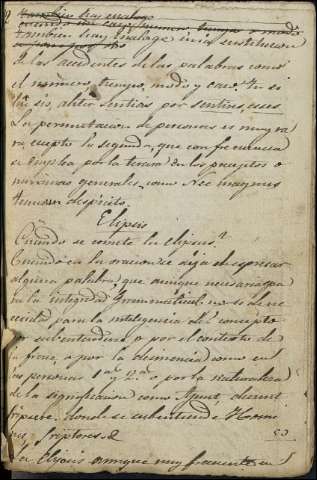 tambien hay enalage
tambien hay Enalage en la sustitucion
de los accidentes de las palabras como
el número, tiempo, modo y caso. Tu si
hic sis, aliter sentias por sentires, esses
La permutacion de personas es muy ra
ra, excepto la segunda, que con frecuencia
se emplea por la tercera en los preceptos o
maximas generales, como Nec
Elipsis
Cuando se comete la Elipsis?
Cuando en la oracion se deja de espresar
alguna palabra que aunque necesaria pa
ra la integridad gramatical no se a ne
cesidad para la inteligencia del concepto
por subentenderse o por el contexto de
la frase, o por la desinencia como en
las personas 1as y 2as o por la naturaleza
de la significacion como Ajunt, dicunt
donde se subentiende Homi
nes, scriptores &
La Elipsis aunque muy frecuente en